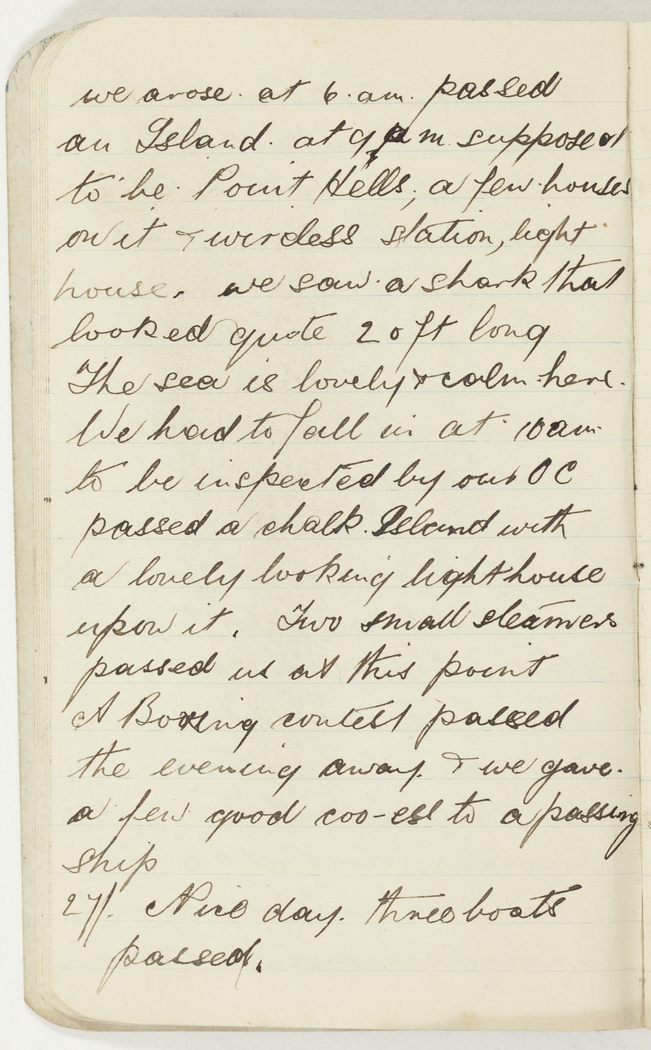 we arose. at 6. am. passed
an Island. at 9 am. supposed
to be. Point Hells, a few houses
on it & wirdess station, light
house. we saw. a shark that
looked quote 20 ft long
The sea is lovely & calm here.
We had to fall in at 10 am
to be inspected by our OC
passed a chalk. Island with
a lovely looking lighthouse
upon it. Two small steamers
passed us at this point
A Boxing contest passed
the evening away. & we gave.
a few good coo-ees to a passing
ship
27/. Nice day. three boats
passed.